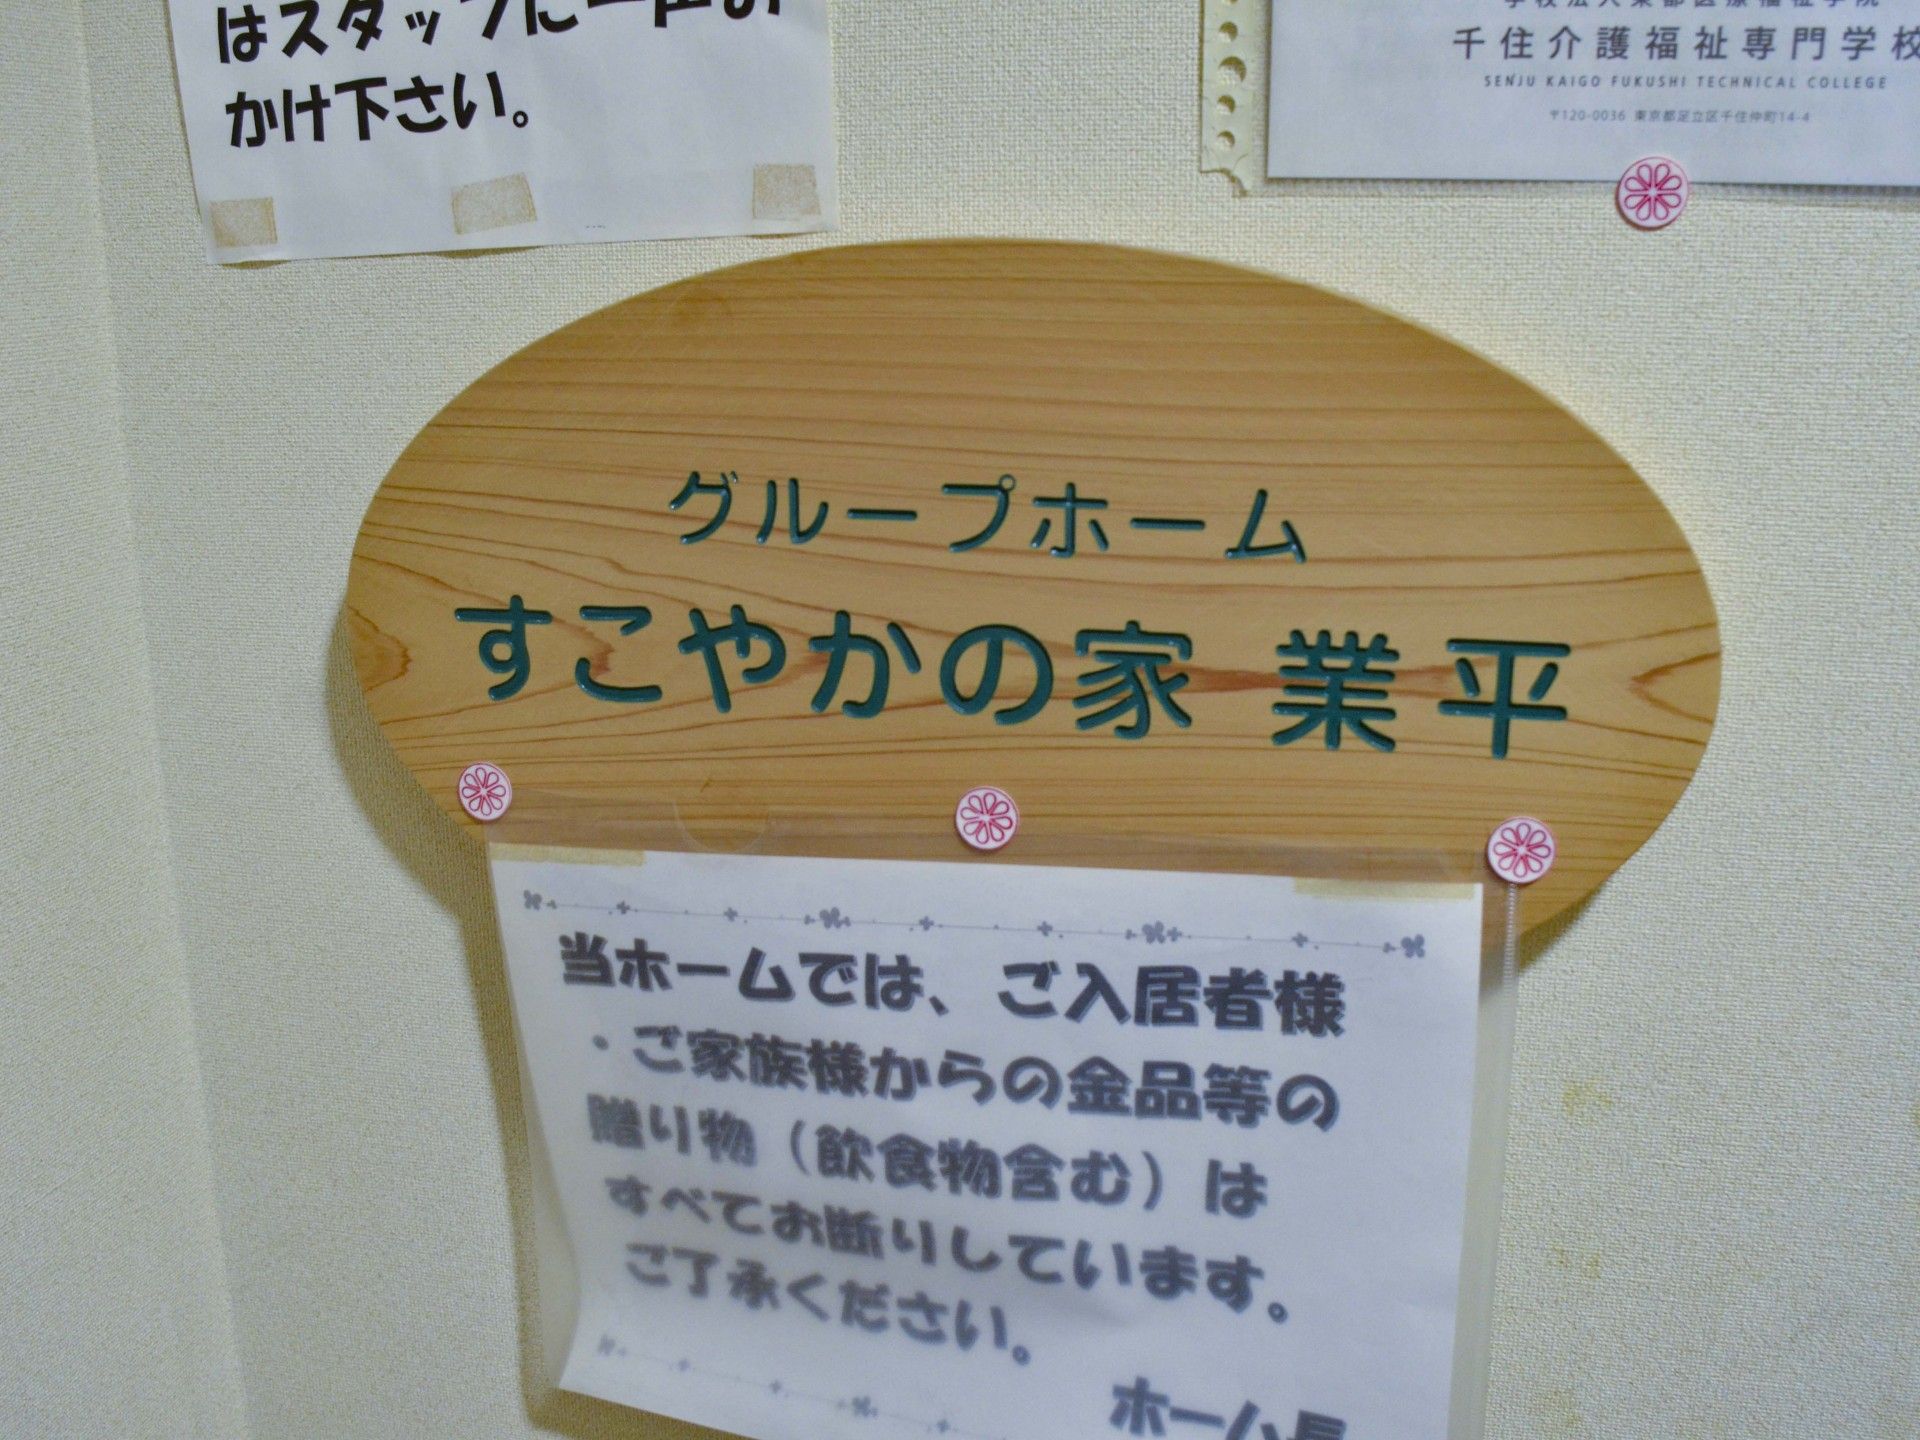 はスタッフに一声お
かけ下さい。
学校法人東都医療福祉学院
千住介護福祉専門学校
SENJU KAIGO FUKUSHI TECHNICAL COLLEGE
〒120-0036 東京都足立区千住仲町14-4
グループホーム
すこやかの家 業平
当ホームでは、ご入居者様
・ご家族様からの金品等の
贈り物（飲食物含む）は
すべてお断りしています。
ご了承ください。
ホーム長